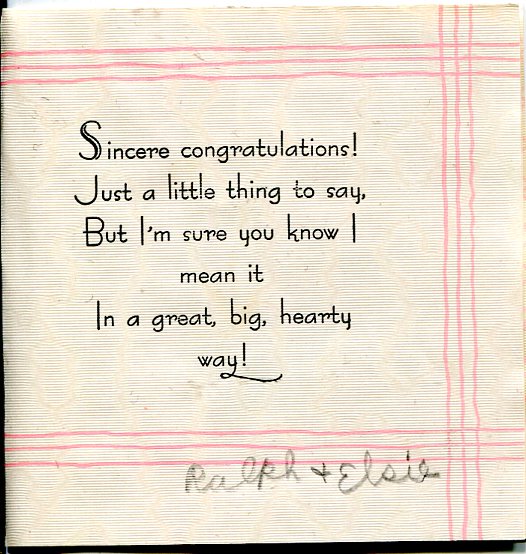 Sincere congratulations!
Just a little thing to say,
But I'm sure you know I
mean it
In a great, big, hearty
way!
Ralph + Elsie